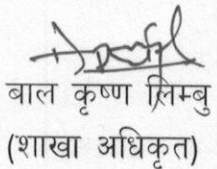 बाल कृष्ण लिम्बु
(शाखा अधिकृत)